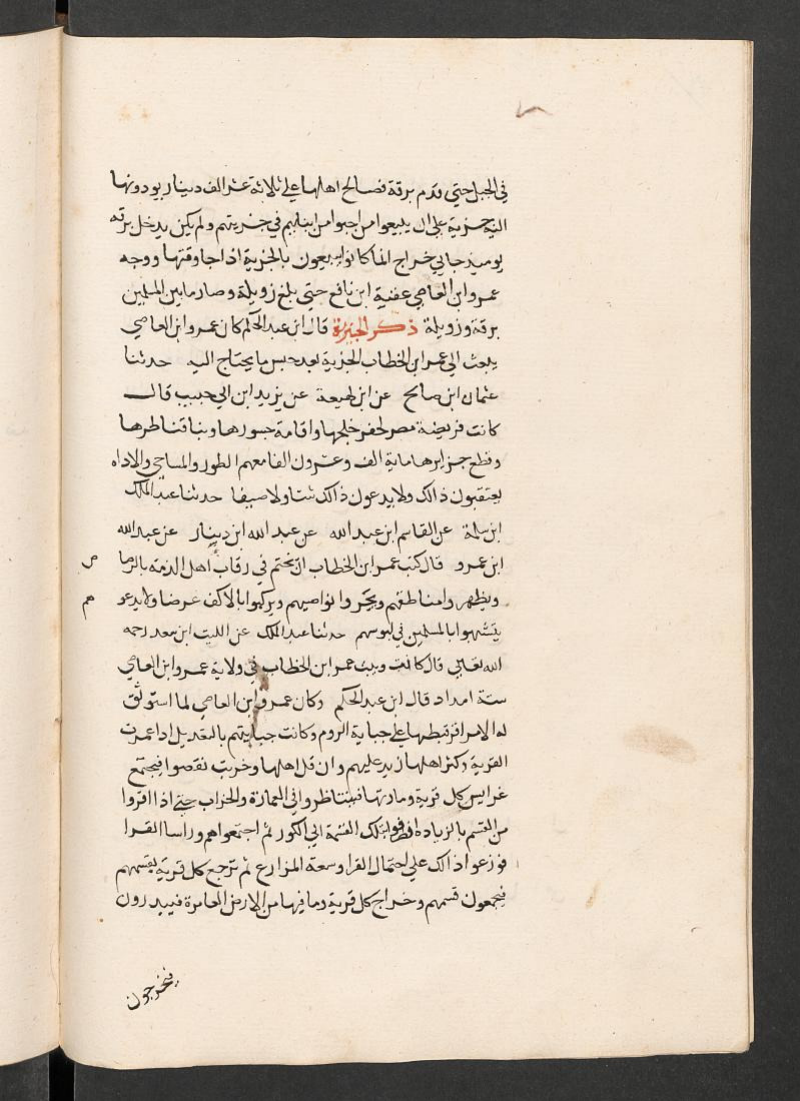 في الجبل حتي قدم برقة فصالح اهلها علي ثلاثة عشر الف دينار يودونها
اليه جزية علي ان يبيعوا من احبوا من ابنايهم في جزيتهم ولم يكن يدخل برقه
يوميد جابي خراج انما كانوا يبعون بالجزية اذا جا وقتها ووجه
عمرو ابن العاصي عقبة ابن نافع حتي بلغ زويلة وصار ما بين المسلمين
برقة وزويلة ذكر الجزية قال ابن عبد الحكم كان عمرو ابن العاصي
يبعث الي عمر ابن الخطاب الجزية بعد حبس ما يحتاج اليه حدثنا
عثمان ابن صالح عن ابن لهيعة عن يزيد ابن ابي حبيب قال
كانت فريضة مصر لحفر خلجها واقامة جسورها وبنا قناطرها
وقطع جزايرها ماية الف وعشرون الفا معهم الطور والمساحي والاداه
يعتقبون ذالك ولا يدعون ذالك شتا ولا صيفا حدثنا عبد الملك
ابن سلمة عن القاسم ابن عبد الله عن عبد الله ابن دينار عن عبد الله
ابن عمرو قال كتب عمر ابن الخطاب ان تختم في رقاب اهل الذمة بالرصا
ص
ويظهروا مناطقهم ويجزوا نواصيهم ويركبوا بالاكف عرضا ولا يدعو
هم
يتشبهوا بالمسلمين في لبوسهم حدثنا عبد الملك عن الليث ابن سعد رحمه
الله تعالي قال كانت ويبت عمر ابن الخطاب في ولاية عمرو ابن العاصي
ستة امداد قال ابن عبد الحكم وكان عمرو ابن العاصي لما استوثق
له الامر اقر قبطها علي جباية الروم وكانت جبايتهم بالتعديل اذا عمرت
القرية وكثر اهلها زيد عليهم وان قل اهلها وخربت نقصوا فيجتمع
غرايس كل قرية ومارتها فيتناظروا في العمارة والخراب حتي اذا اقروا
من القسم بالزياده بتلك القسمة الي الكور ثم اجتمعوا هم وراسا القرا
فوزعوا ذالك علي احتمال القرا وسعة المزارع ثم ترجع كل قرية بقسمهم
فيجمعون قسمهم وخراج كل قرية وما فيها من الارض العامرة فيبدرون
فيخرجون